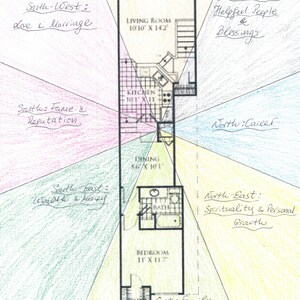 South-West:
Love & Marriage
Helpful People
&
Blessings
LIVING ROOM
10'10" X 14'2"
KITCHEN
South: Fame &
Reputation
North: Career
DINING
8'6" X 10'1"
South-East:
Wealth & Money
North-East:
Spirituality & Personal
Growth
BATH
BEDROOM
11' X 11'7"